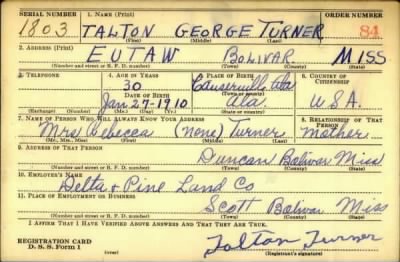 SERIAL NUMBER 1. NAME (Print) ORDER NUMBER
1803 TALTON GEORGE TURNER 84
(First) (Middle) (Last)
2. ADDRESS (Print)
EUTAW BOLIVAR MISS
(Number and street or R. F. D. number) (Town) (County) (State)
3. TELEPHONE 4. AGE IN YEARS 5. PLACE OF BIRTH 6. COUNTRY OF CITIZENSHIP
30 Ala
DATE OF BIRTH (Town or county)
Jan-29-1910 Ala. U.S.A.
(Exchange) (Number) (Mo.) (Day) (Yr.) (State or country)
7. NAME OF PERSON WHO WILL ALWAYS KNOW YOUR ADDRESS 8. RELATIONSHIP OF THAT PERSON
Mrs Rebecca (None) Turner Mother
(Mr., Mrs., Miss) (First) (Middle) (Last)
9. ADDRESS OF THAT PERSON
Duncan Bolivar Miss
(Number and street or R. F. D. number) (Town) (County) (State)
10. EMPLOYER'S NAME
Delta & Pine Land Co
11. PLACE OF EMPLOYMENT OR BUSINESS
Scott Bolivar Miss
(Number and street or R. F. D. number) (Town) (County) (State)
I AFFIRM THAT I HAVE VERIFIED ABOVE ANSWERS AND THAT THEY ARE TRUE.
REGISTRATION CARD
D. S. S. Form 1 Talton Turner
(Registrant's signature)